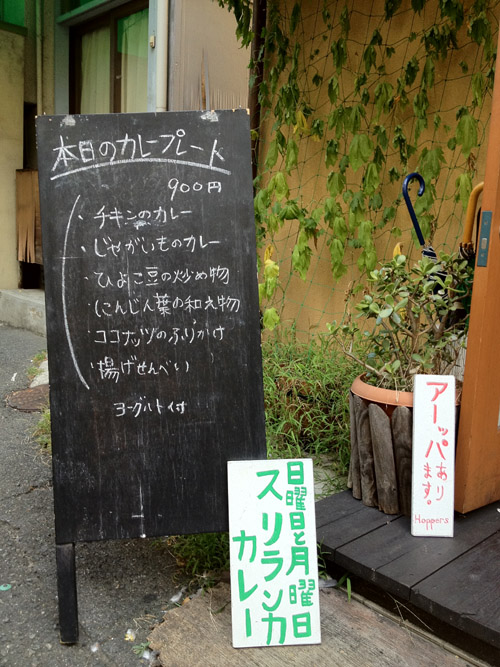 本日のカレープレート
900円
・チキンのカレー
・じゃがいものカレー
・ひよこ豆の炒め物
・にんじん葉の和え物
・ココナッツのふりかけ
・揚げせんべい
ヨーグルト付
日曜日と月曜日
スリランカ
カレー
アーッパ
あり
ます。
Hoppers